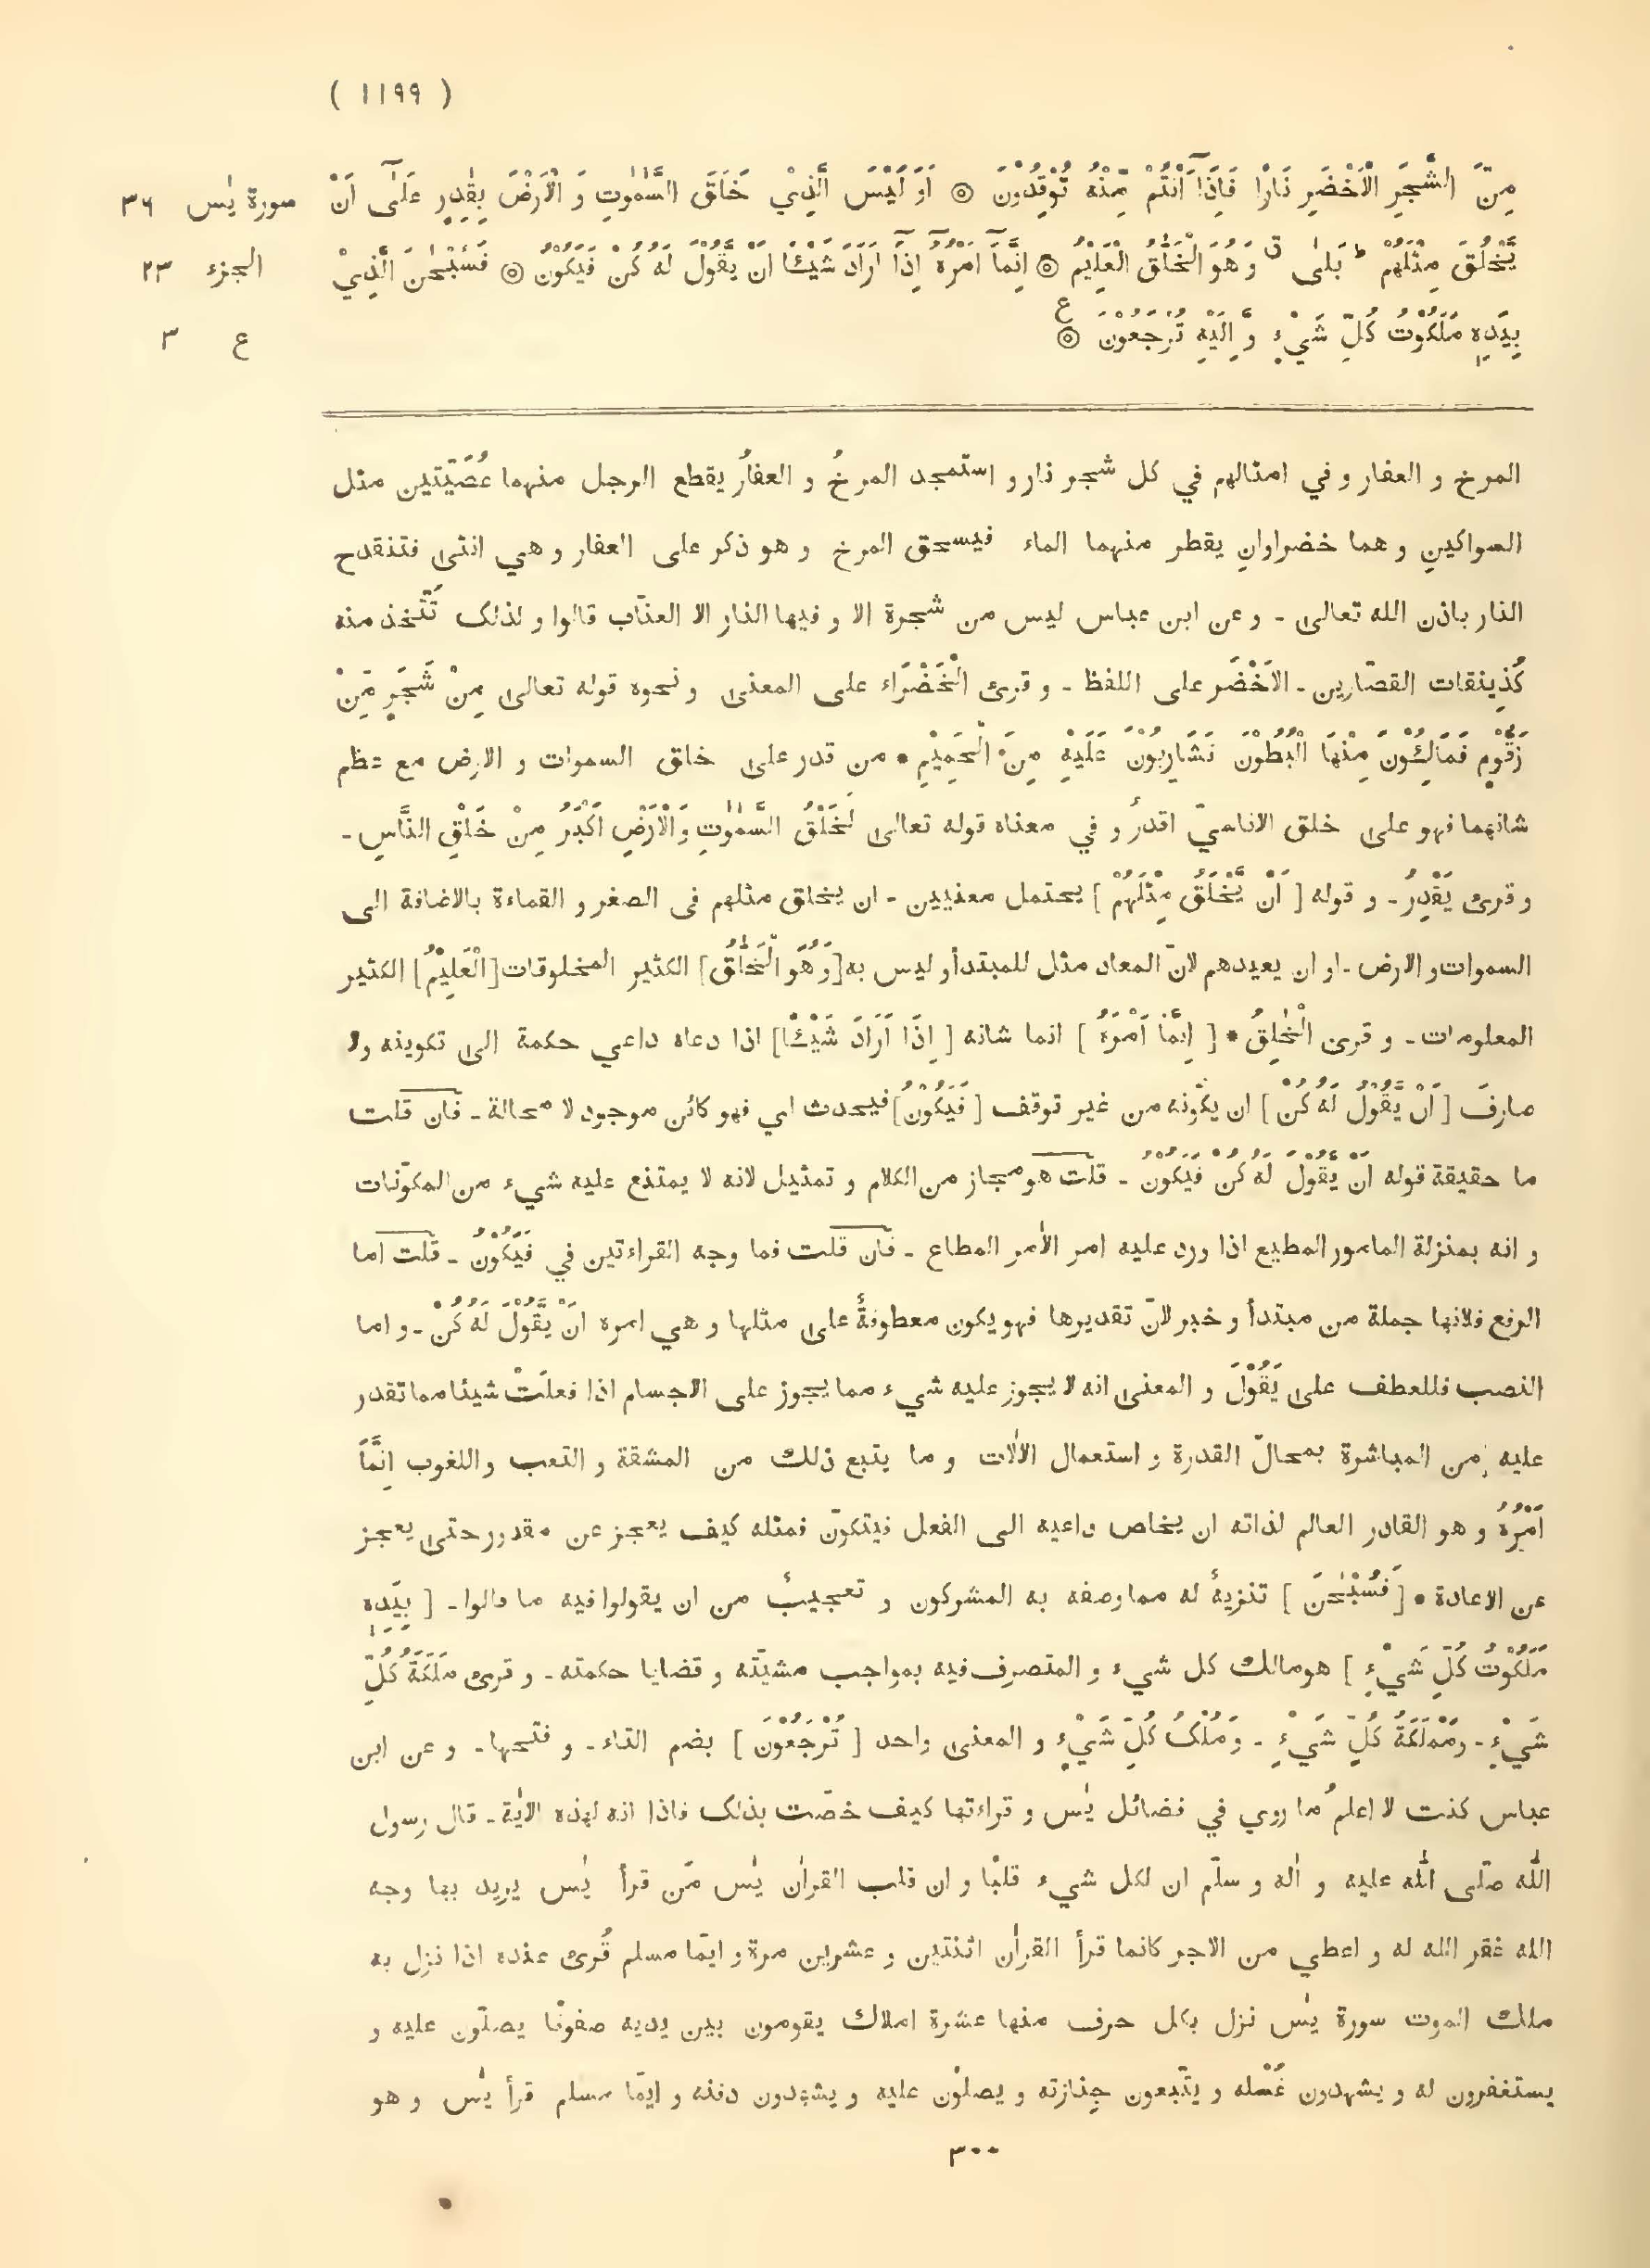 ( ١١٩٩ )
مِنَّ الشَّجَرِ الْاَخْضَرِ نَارًا فَاِذَآ اَنْتُمْ مِّنْهُ تُوْقِدُوْنَ ۞ اَوَ لَيْسَ الَّذِيْ خَلَقَ السَّمٰوٰتِ وَ الْاَرْضَ بِقٰدِرٍ عَلٰٓى اَنْ
سورة يٰس ٣٦
يَّخْلُقَ مِثْلَهُمْ ط بَلٰى ق وَ هُوَ الْخَلّٰقُ الْعَلِيْمُ ۞ اِنَّمَآ اَمْرُهٗٓ اِذَآ اَرَادَ شَيْـًٔا اَنْ يَّقُوْلَ لَهٗ كُنْ فَيَكُوْنُ ۞ فَسُبْحٰنَ الَّذِيْ
الجزء ٢٣
بِيَدِهٖ مَلَكُوْتُ كُلِّ شَيْءٍ وَّ اِلَيْهِ تُرْجَعُوْنَ ۞ ع
ع ٣
المرخ و العفار و في امثالهم في كل شجر نار و استمجد المرخُ و العفارُ يقطع الرجل منهما عُصَيَّتين مثل
السواكينِ و هما خضراوانِ يقطر منهما الماء فيسحق المرخ و هو ذكر على العفار و هي انثى فتنقدح
النار باذن الله تعالى ـ و عن ابن عباس ليس من شجرة الا و فيها النار الا العنّاب قالوا و لذلك تُتّخذ منه
كُذِينقات القصّارين ـ الاَخْضَر على اللفظ ـ و قرئ الْخَضْرَاء على المعنى و نحوه قوله تعالى مِنْ شَجَرٍ مِّنْ
زَقُّوْمٍ فَمَالِئُوْنَ مِنْهَا الْبُطُوْنَ فَشَارِبُوْنَ عَلَيْهِ مِنَ الْحَمِيْمِ • من قدر على خلق السموات و الارض مع عظم
شانهما فهو على خلق الاناسيّ اقدرُ و في معناه قوله تعالى لَخَلْقُ السَّمٰوٰتِ وَالْاَرْضِ اَكْبَرُ مِنْ خَلْقِ النَّاسِ ـ
و قرئ يَقْدِرُ ـ و قوله [ اَنْ يَّخْلُقَ مِثْلَهُمْ ] يحتمل معنيين ـ ان يخلق مثلهم فى الصغر و القماءة بالاضافة الى
السموات و الارض ـ او ان يعيدهم لانّ المعاد مثل للمبتدأ و ليس به [ وَ هُوَ الْخَلّٰقُ ] الكثير المخلوقات [ الْعَلِيْمُ ] الكثير
المعلومات ـ و قرئ الْخٰلِقُ • [ اِنَّمَا اَمْرُهٗ ] انما شانه [ اِذَا اَرَادَ شَيْـًٔا ] اذا دعاه داعي حكمة الى تكوينه ولا
صارفَ [ اَنْ يَّقُوْلَ لَهٗ كُنْ ] ان يكوّنه من غير توقف [ فَيَكُوْنُ ] فيحدث اي فهو كائن موجود لا محالة ـ فان قلت
ما حقيقة قوله اَنْ يَّقُوْلَ لَهٗ كُنْ فَيَكُوْنُ ـ قلت هو مجاز من الكلام و تمثيل لانه لا يمتنع عليه شيء من المكوّنات
و انه بمنزلة المامور المطيع اذا ورد عليه امر الاٰمر المطاع ـ فان قلت فما وجه القراءتين في فَيَكُوْنُ ـ قلت اما
الرفع فلانها جملة من مبتدأ و خبر لانّ تقديرها فهو يكون معطوفةٌ على مثلها و هي امره اَنْ يَّقُوْلَ لَهٗ كُنْ ـ و اما
النصب فللعطف على يَقُوْلَ و المعنى انه لا يجوز عليه شيء مما يجوز على الاجسام اذا فعلَتْ شيئا مما تقدر
عليه من المباشرة بمحالّ القدرة و استعمال الاٰلات و ما يتبع ذلك من المشقة و التعب و اللغوب اِنَّمَآ
اَمْرُهٗ و هو القادر العالم لذاته ان يخلص داعيه الى الفعل فيتكوّن فمثله كيف يعجز عن مقدور حتى يعجز
عن الاعادة • [ فَسُبْحٰنَ ] تنزيهٌ له مما وصفه به المشركون و تعجيبٌ من ان يقولوا فيه ما قالوا ـ [ بِيَدِهٖ
مَلَكُوْتُ كُلِّ شَيْءٍ ] هو مالك كل شيء و المتصرف فيه بمواجب مشيّته و قضايا حكمته ـ و قرئ مَلَكَةُ كُلِّ
شَيْءٍ ـ ومَمْلَكَةُ كُلِّ شَيْءٍ ـ وَمُلْكُ كُلِّ شَيْءٍ و المعنى واحد [ تُرْجَعُوْنَ ] بضم التاء ـ و فتحها ـ و عن ابن
عباس كنت لا اعلم ما روي في فضائل يٰس و قراءتها كيف خصّت بذلك فاذا انه لهذه الاٰية ـ قال رسول
الله صلّى الله عليه و اٰله و سلّم ان لكل شيء قلبًا و ان قلب القراٰن يٰس مَن قرأ يٰس يريد بها وجه
الله غفر الله له و اعطي من الاجر كانما قرأ القراٰن اثنتين و عشرين مرة و ايّما مسلم قُرئ عنده اذا نزل به
ملك الموت سورة يٰس نزل بكل حرف منها عشرة املاك يقومون بين يديه صفوفًا يصلّون عليه و
يستغفرون له و يشهدون غُسْله و يتّبعون جِنازته و يصلّون عليه و يشهدون دفنه و ايّما مسلم قرأ يٰس و هو
٣٠٠